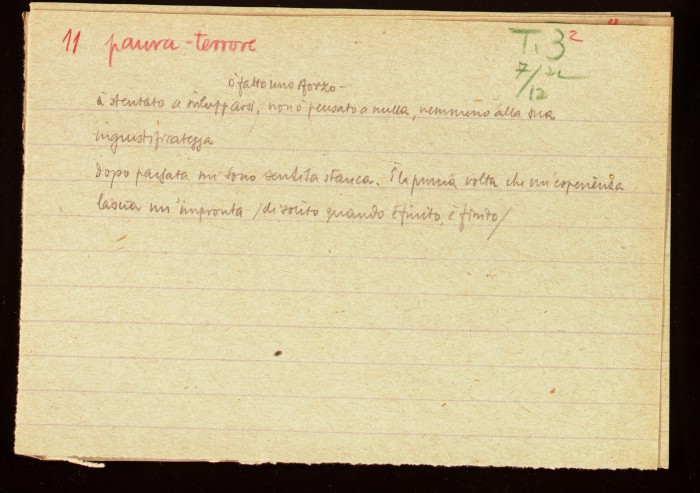 11 paura-terrore
T. 3 2
7/XII
12
ò fatto uno sforzo-
à stentato a svilupparsi, non ò pensato a nulla, nemmeno alla sua
ingiustificatezza
Dopo passata mi sono sentita stanca. È la prima volta che un'esperienza
lascia un'impronta /di solito quando è finito, è finito/